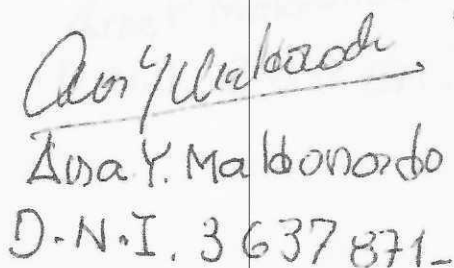 Ana Y Maldonado
Ana Y. Maldonado
D.N.I. 3637871-